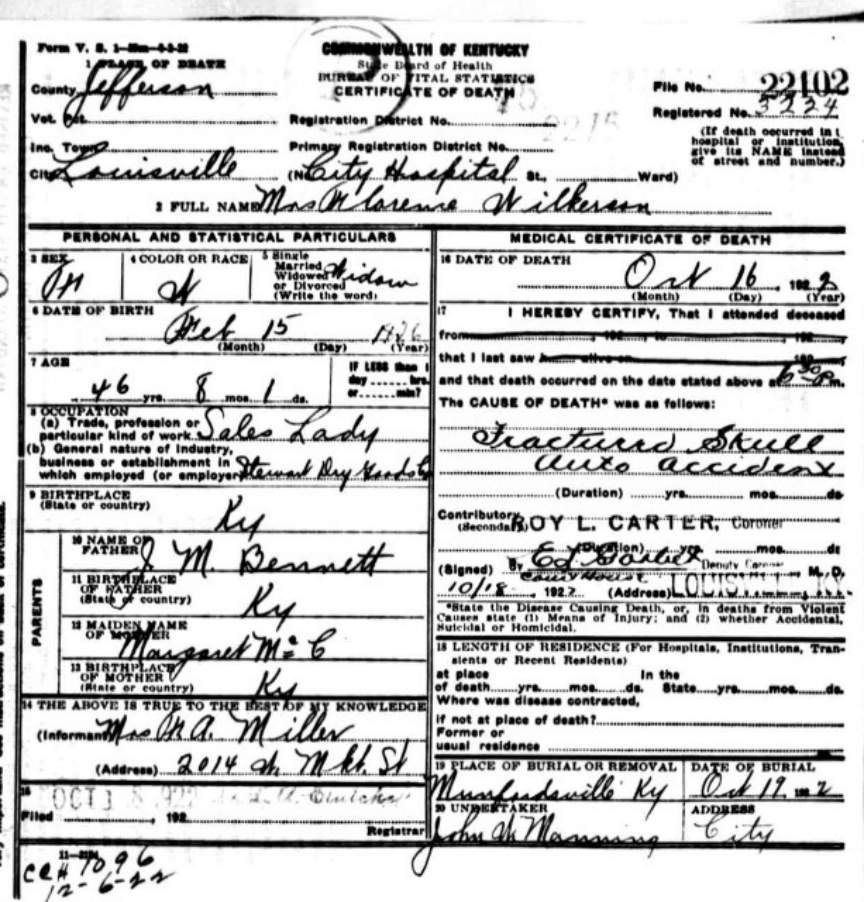 Form V. S. 1
1 PLACE OF DEATH
County Jefferson
Vot. Pct.
Inc. Town
City Louisville
COMMONWEALTH OF KENTUCKY
State Board of Health
BUREAU OF VITAL STATISTICS
CERTIFICATE OF DEATH
Registration District No.
Primary Registration District No.
(No City Hospital St., Ward)
File No. 22102
Registered No. 3224
(If death occurred in
hospital or institution,
give its NAME instead
of street and number.)
2215
2 FULL NAME Mrs Florence Wilkerson
PERSONAL AND STATISTICAL PARTICULARS
3 SEX
4 COLOR OR RACE
W
5 Single
Married
Widowed
or Divorced
(Write the word)
Widow
6 DATE OF BIRTH
Feb 15
(Month) (Day) (Year)
7 AGE
46 yrs. 8 mos. 1 ds.
IF LESS than 1
day hrs.
or min?
8 OCCUPATION
(a) Trade, profession or
particular kind of work Sales Lady
(b) General nature of industry,
business or establishment in
which employed (or employer) Stewart Dry Goods Co
9 BIRTHPLACE
(State or country)
Ky
PARENTS
10 NAME OF
FATHER J. M. Bennett
11 BIRTHPLACE
OF FATHER
(State or country) Ky
12 MAIDEN NAME
OF MOTHER
Margaret Mc C
13 BIRTHPLACE
OF MOTHER
(State or country) Ky
14 THE ABOVE IS TRUE TO THE BEST OF MY KNOWLEDGE
(Informant) Mrs A. Miller
(Address) 2014 W. Mkt. St
15
OCT 18 1922
Filed , 192
Registrar
MEDICAL CERTIFICATE OF DEATH
16 DATE OF DEATH
Oct 16, 1922
(Month) (Day) (Year)
17 I HEREBY CERTIFY, That I attended deceased
from , 192 , to , 192
that I last saw h alive on 192
and that death occurred on the date stated above at 6 30 P m.
The CAUSE OF DEATH* was as follows:
Fractured Skull
Auto Accident
(Duration) yrs. mos. ds
Contributory
(Secondary)
ROY L. CARTER, Coroner
(Duration) yrs. mos. ds
(Signed) By Deputy Coroner M. D.
Court House
10/18, 1922 (Address) LOUISVILLE, KY.
*State the Disease Causing Death, or, in deaths from Violent
Causes state (1) Means of Injury; and (2) whether Accidental,
Suicidal or Homicidal.
18 LENGTH OF RESIDENCE (For Hospitals, Institutions, Tran-
sients or Recent Residents)
at place In the
of death yrs. mos. ds. State yrs. mos. ds.
Where was disease contracted,
if not at place of death?
Former or
usual residence
19 PLACE OF BURIAL OR REMOVAL
Munfordsville Ky
DATE OF BURIAL
Oct 19, 1922
20 UNDERTAKER
John Manning
ADDRESS
City
7096
12-6-22